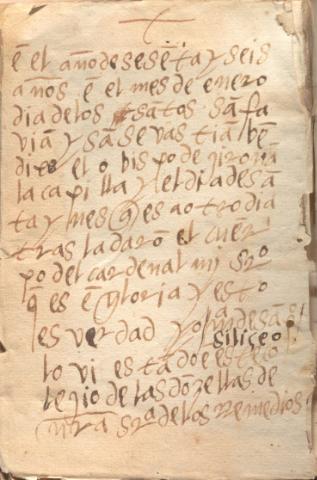 ē el año de sesēta y seis
años ē el mes de enero
dia de los santos san fa
vian y san sevastian bē
dixo el obispo de girona
la capilla y el dia de san
ta ynes q es aotro dia
trasladarō el cuer
po del cardenal mi sr
q es ē gloria y esto
es verdad yo
siliceo
lo vi estādo ē este co
legio de las dōzellas de
nra sra de los rremedios